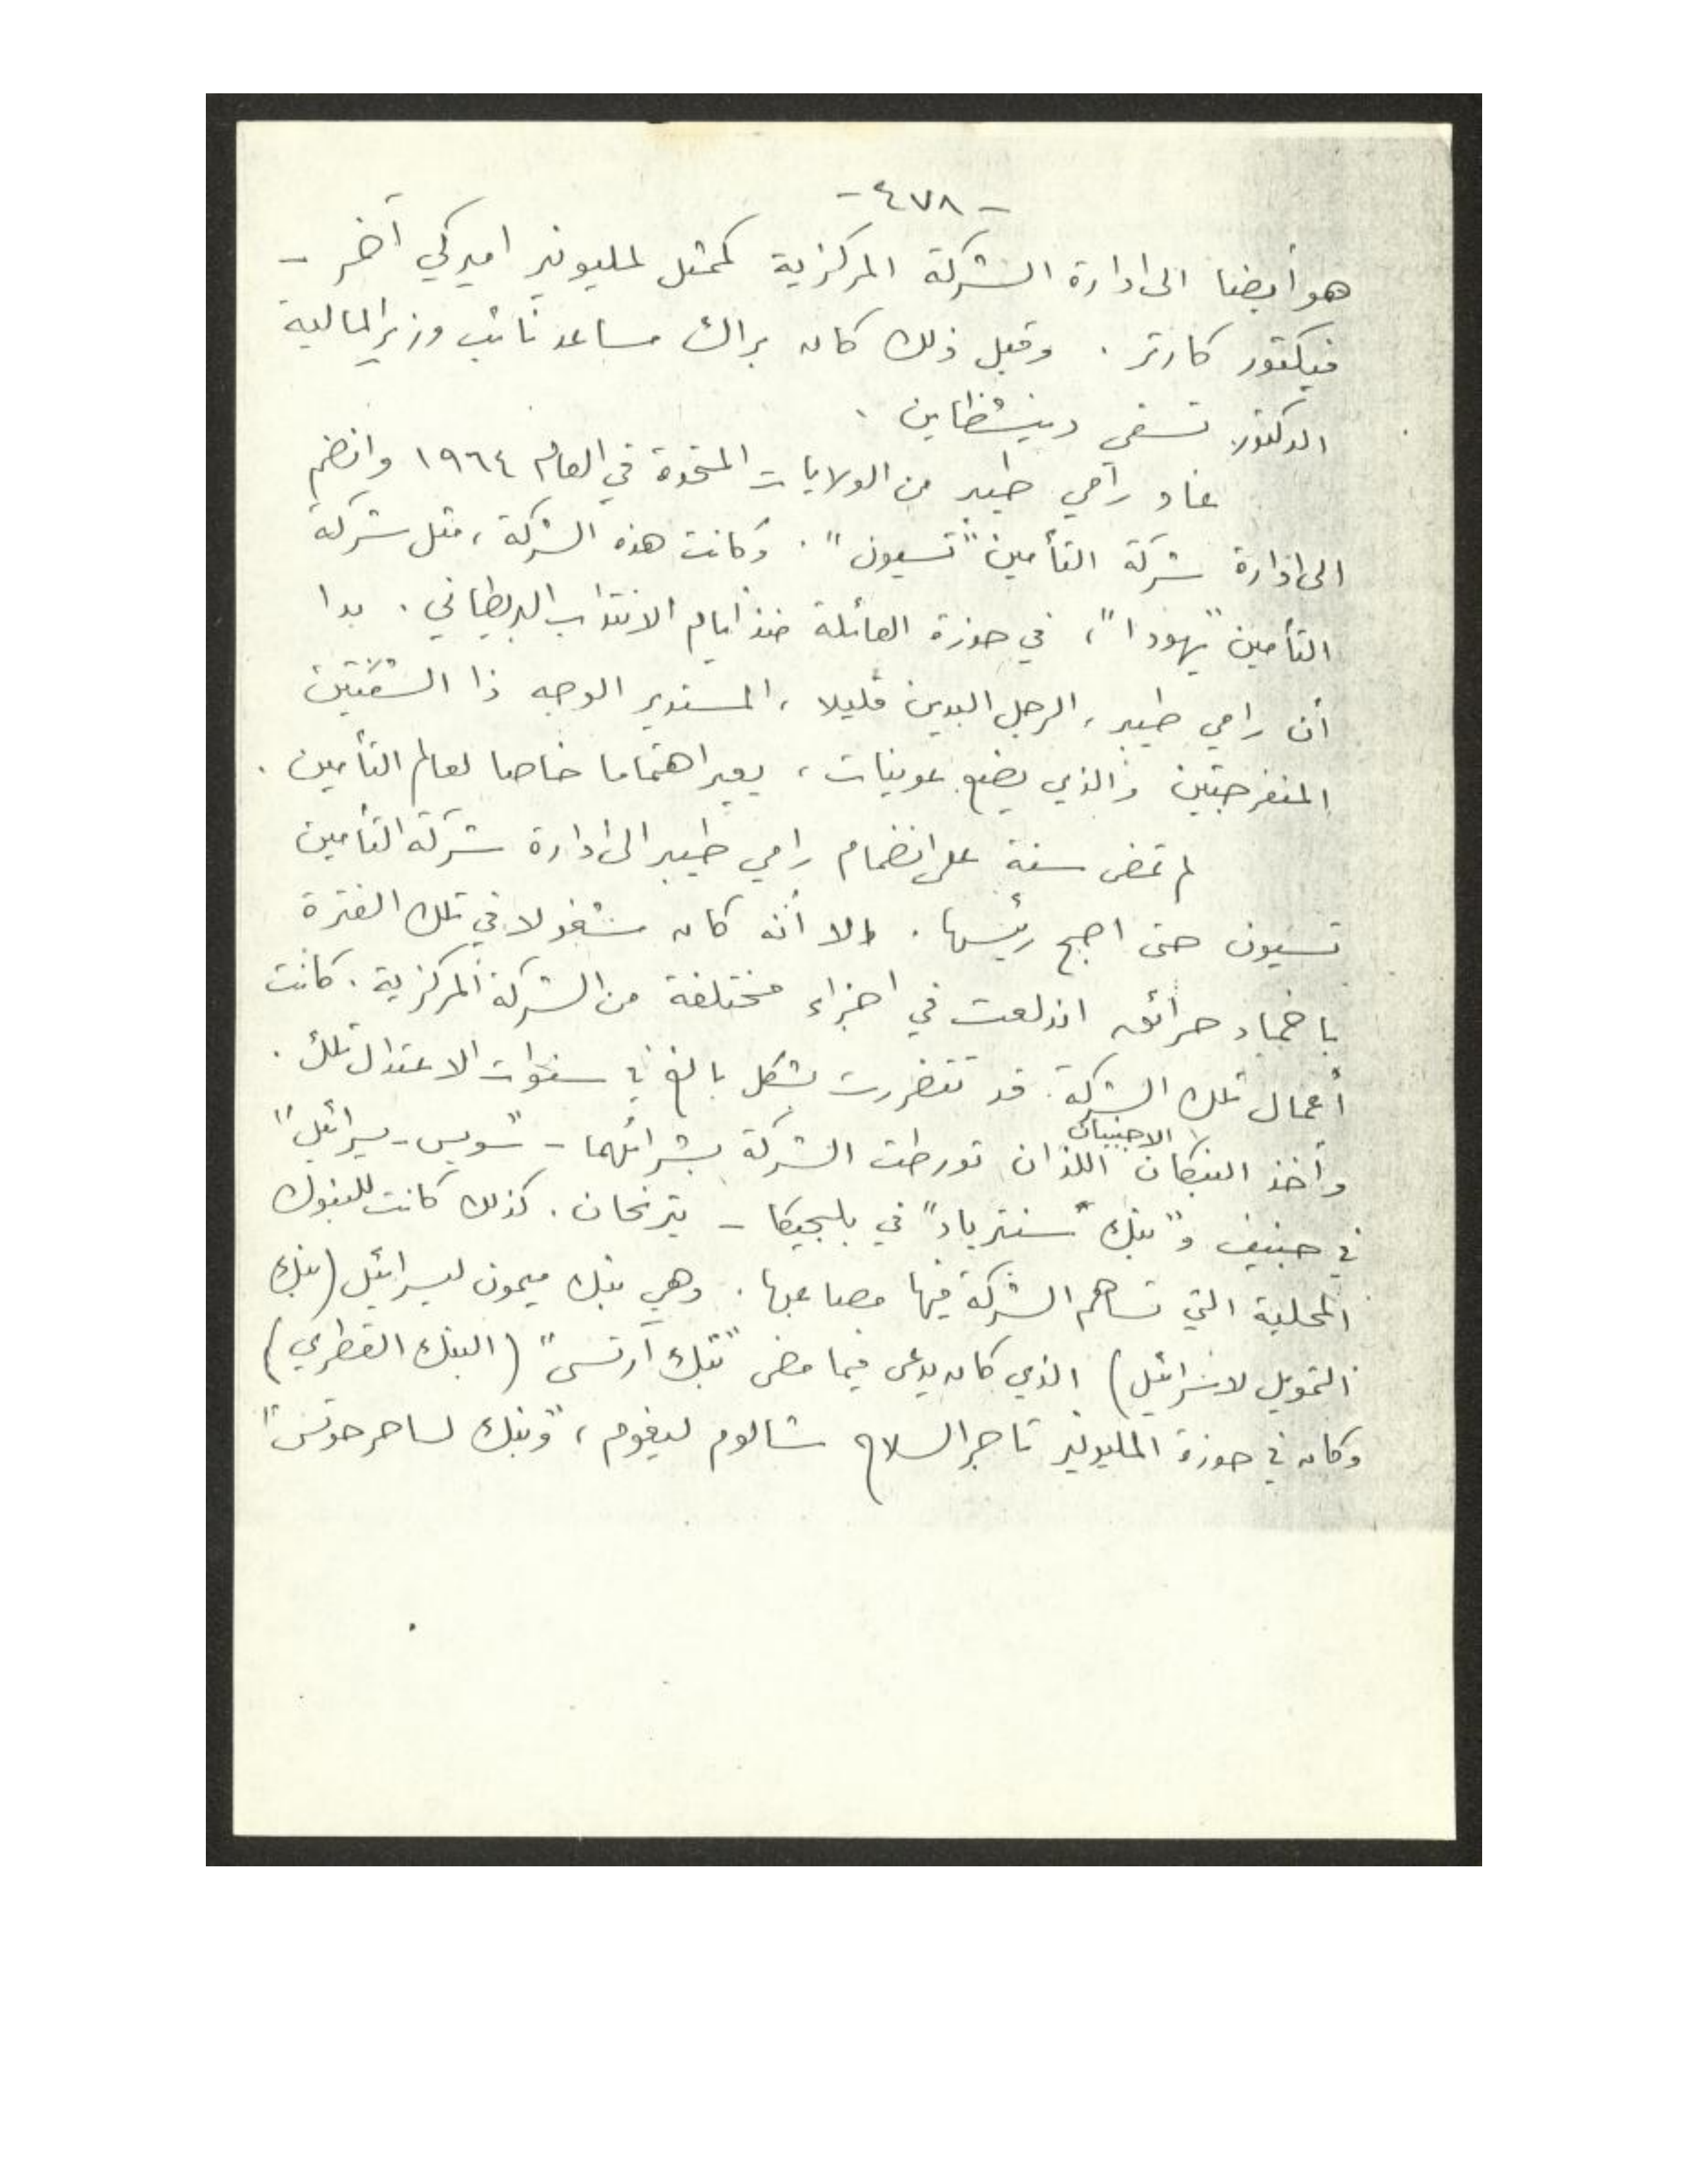 - ٤٧٨ -
هو أيضا الى ادارة الشركة المركزية كممثل لمليونير اميركي آخر -
فيكتور كارتر . وقبل ذلك كان براك مساعد نائب وزير المالية
الدكتور تسفي دينشطاين .
عاد رامي طيبر من الولايات المتحدة في العام ١٩٦٤ وانضم
الى ادارة شركة التأمين "تسيون" . وكانت هذه الشركة ، مثل شركة
التأمين "يهودا" ، في حوزة العائلة منذ أيام الانتداب البريطاني . بدا
أن رامي طيبر ، الرجل البدين قليلا ، المستدير الوجه ذا الشفتين
المنفرجتين والذي يضع عوينات ، يعير اهتماما خاصا لعالم التأمين .
لم تمض سنة على انضمام رامي طيبر الى ادارة شركة التأمين
تسيون حتى اصبح رئيسها . الا أنه كان مشغولا في تلك الفترة
باخماد حرائق اندلعت في اجزاء مختلفة من الشركة المركزية . كانت
أعمال تلك الشركة قد تضررت بشكل بالغ في سنوات الاعتدال تلك .
وأخذ البنكان الاجنبيان اللذان تورطت الشركة بشرائهما - "سويس - يسرائيل"
في جنيف و"بنك سنترباد" في بلجيكا - يترنحان . كذلك كانت للبنوك
المحلية التي تساهم الشركة فيها مصاعبها . وهي بنك ميمون ليسرائيل (بنك
التمويل لاسرائيل) الذي كان يدعى فيما مضى "بنك ارتسي" (البنك القطري)
وكان في حوزة المليونير تاجر السلاح شالوم ليفوم ، "وبنك لساحر حوتس"